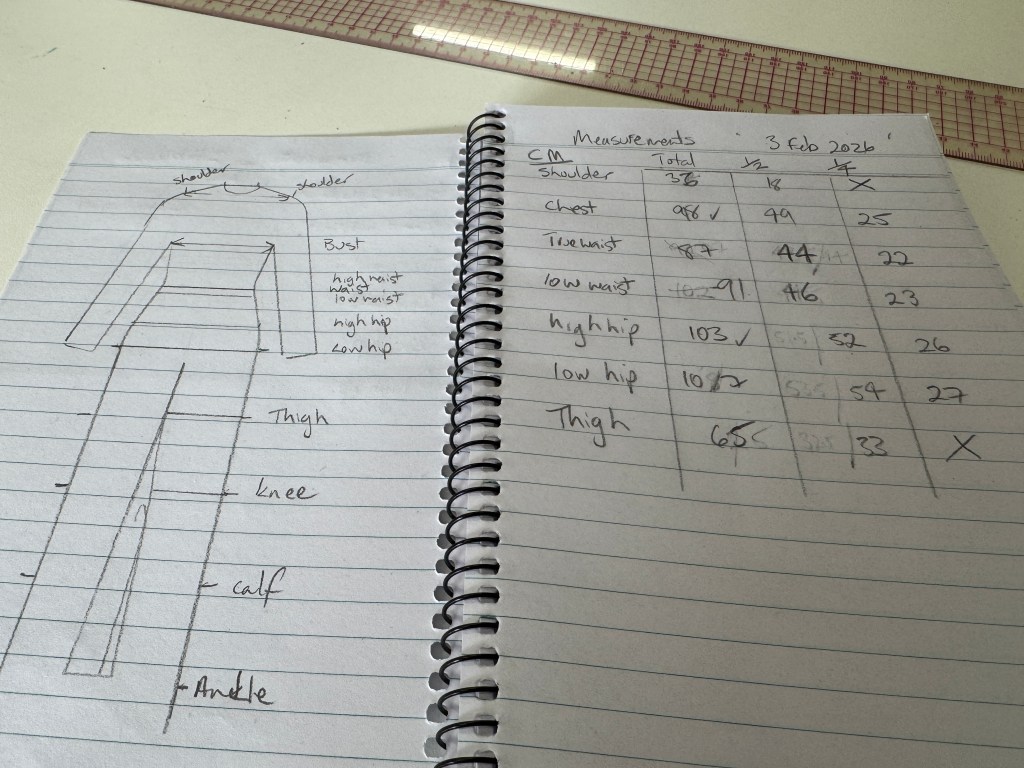 shoulder shoulder
Bust
high waist
waist
low waist
high hip
Low hip
Thigh
knee
calf
Ankle
Measurements 3 Feb 2026
CM Total 1/2 1/4
Shoulder 36 18 X
Chest 98 ✓ 49 25
True waist 87 44 22
low waist 91 46 23
high hip 103 ✓ 52 26
low hip 54 27
Thigh 65 33 X